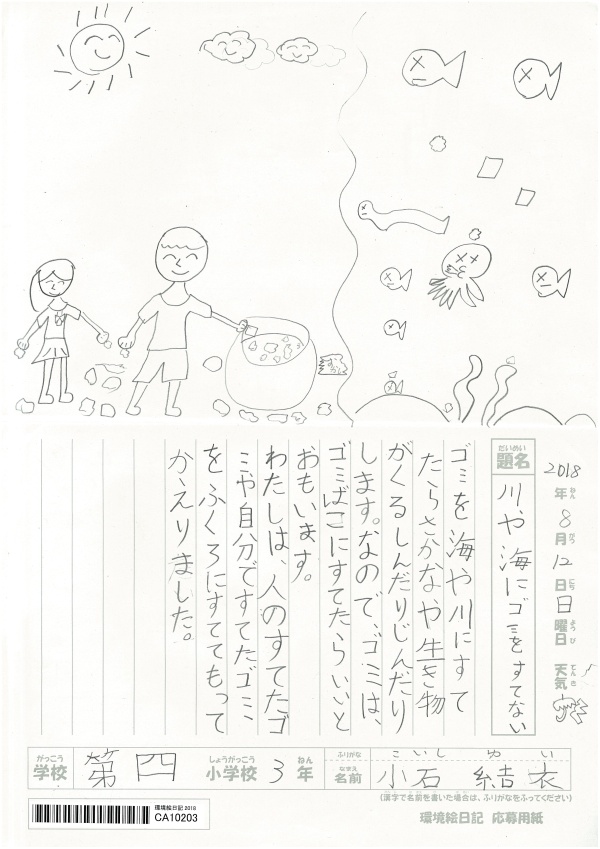 2018年ねん8月がつ12日にち日曜日ようび天気てんき
だいめい
題名
川や海にゴミをすてない
ゴミを海や川にすて
たらさかなや生き物
がくるしんだりじんだり
します。なので、ゴミは、
ゴミばこにすてたらいいと
おもいます。
わたしは、人のすてたゴ
ミや自分ですてたゴミ、
をふくろにすててもって
かえりました。
がっこう しょうがっこう ねん ふりがな こいし ゆい
学校 第四 小学校 3年 なまえ 名前 小石 結衣
(漢字で名前を書いた場合は、ふりがなをふってください)
環境絵日記 2018
CA10203
環境絵日記 応募用紙